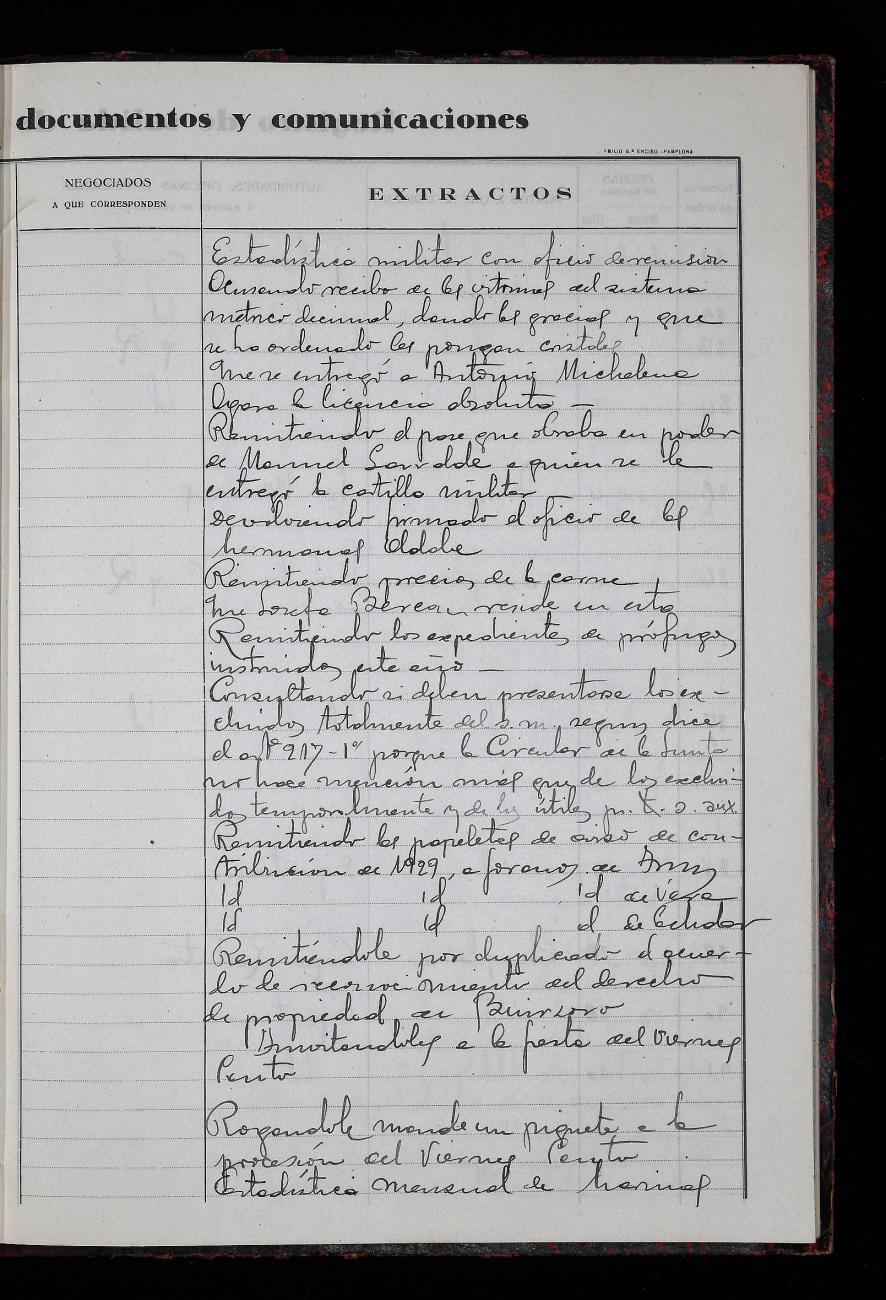 documentos y comunicaciones
EMILIO G.ª ENCISO.-PAMPLONA
NEGOCIADOS
A QUE CORRESPONDEN
EXTRACTOS
Estadística militar con oficio de remision
Acusando recibo de las vitrinas del sistema
métrico decimal, dando las gracias y que
se ha ordenado les pongan cristales
Que se entregó a Antonio Michelena
la licencia absoluta —
Remitiendo el pase que obraba en poder
de Manuel a quien se le
entregó la cartilla militar
Devolviendo firmado el oficio de las
hermanas
Remitiendo precios de la carne
Que Josefa reside en esta
Remitiendo los expedientes de prófugos
instruidos este año —
Consultando si deben presentarse los ex-
cluidos totalmente del s.m. segun dice
el artº 217-1º porque la Circular de la Junta
no hace mención más que de los exclui-
dos temporalmente y de los útiles pr. s. aux.
Remitiendo las papeletas de aviso de con-
tribución de 1929, a foranos de Irun
Id id id de Vera
Id id id de
Remitiéndole por duplicado el acuer-
do de reconocimiento del derecho
de propiedad de
Invitandoles a la fiesta del Viernes
Santo
Rogandole mande un piquete a la
procesión del Viernes Santo
Estadística mensual de harinas